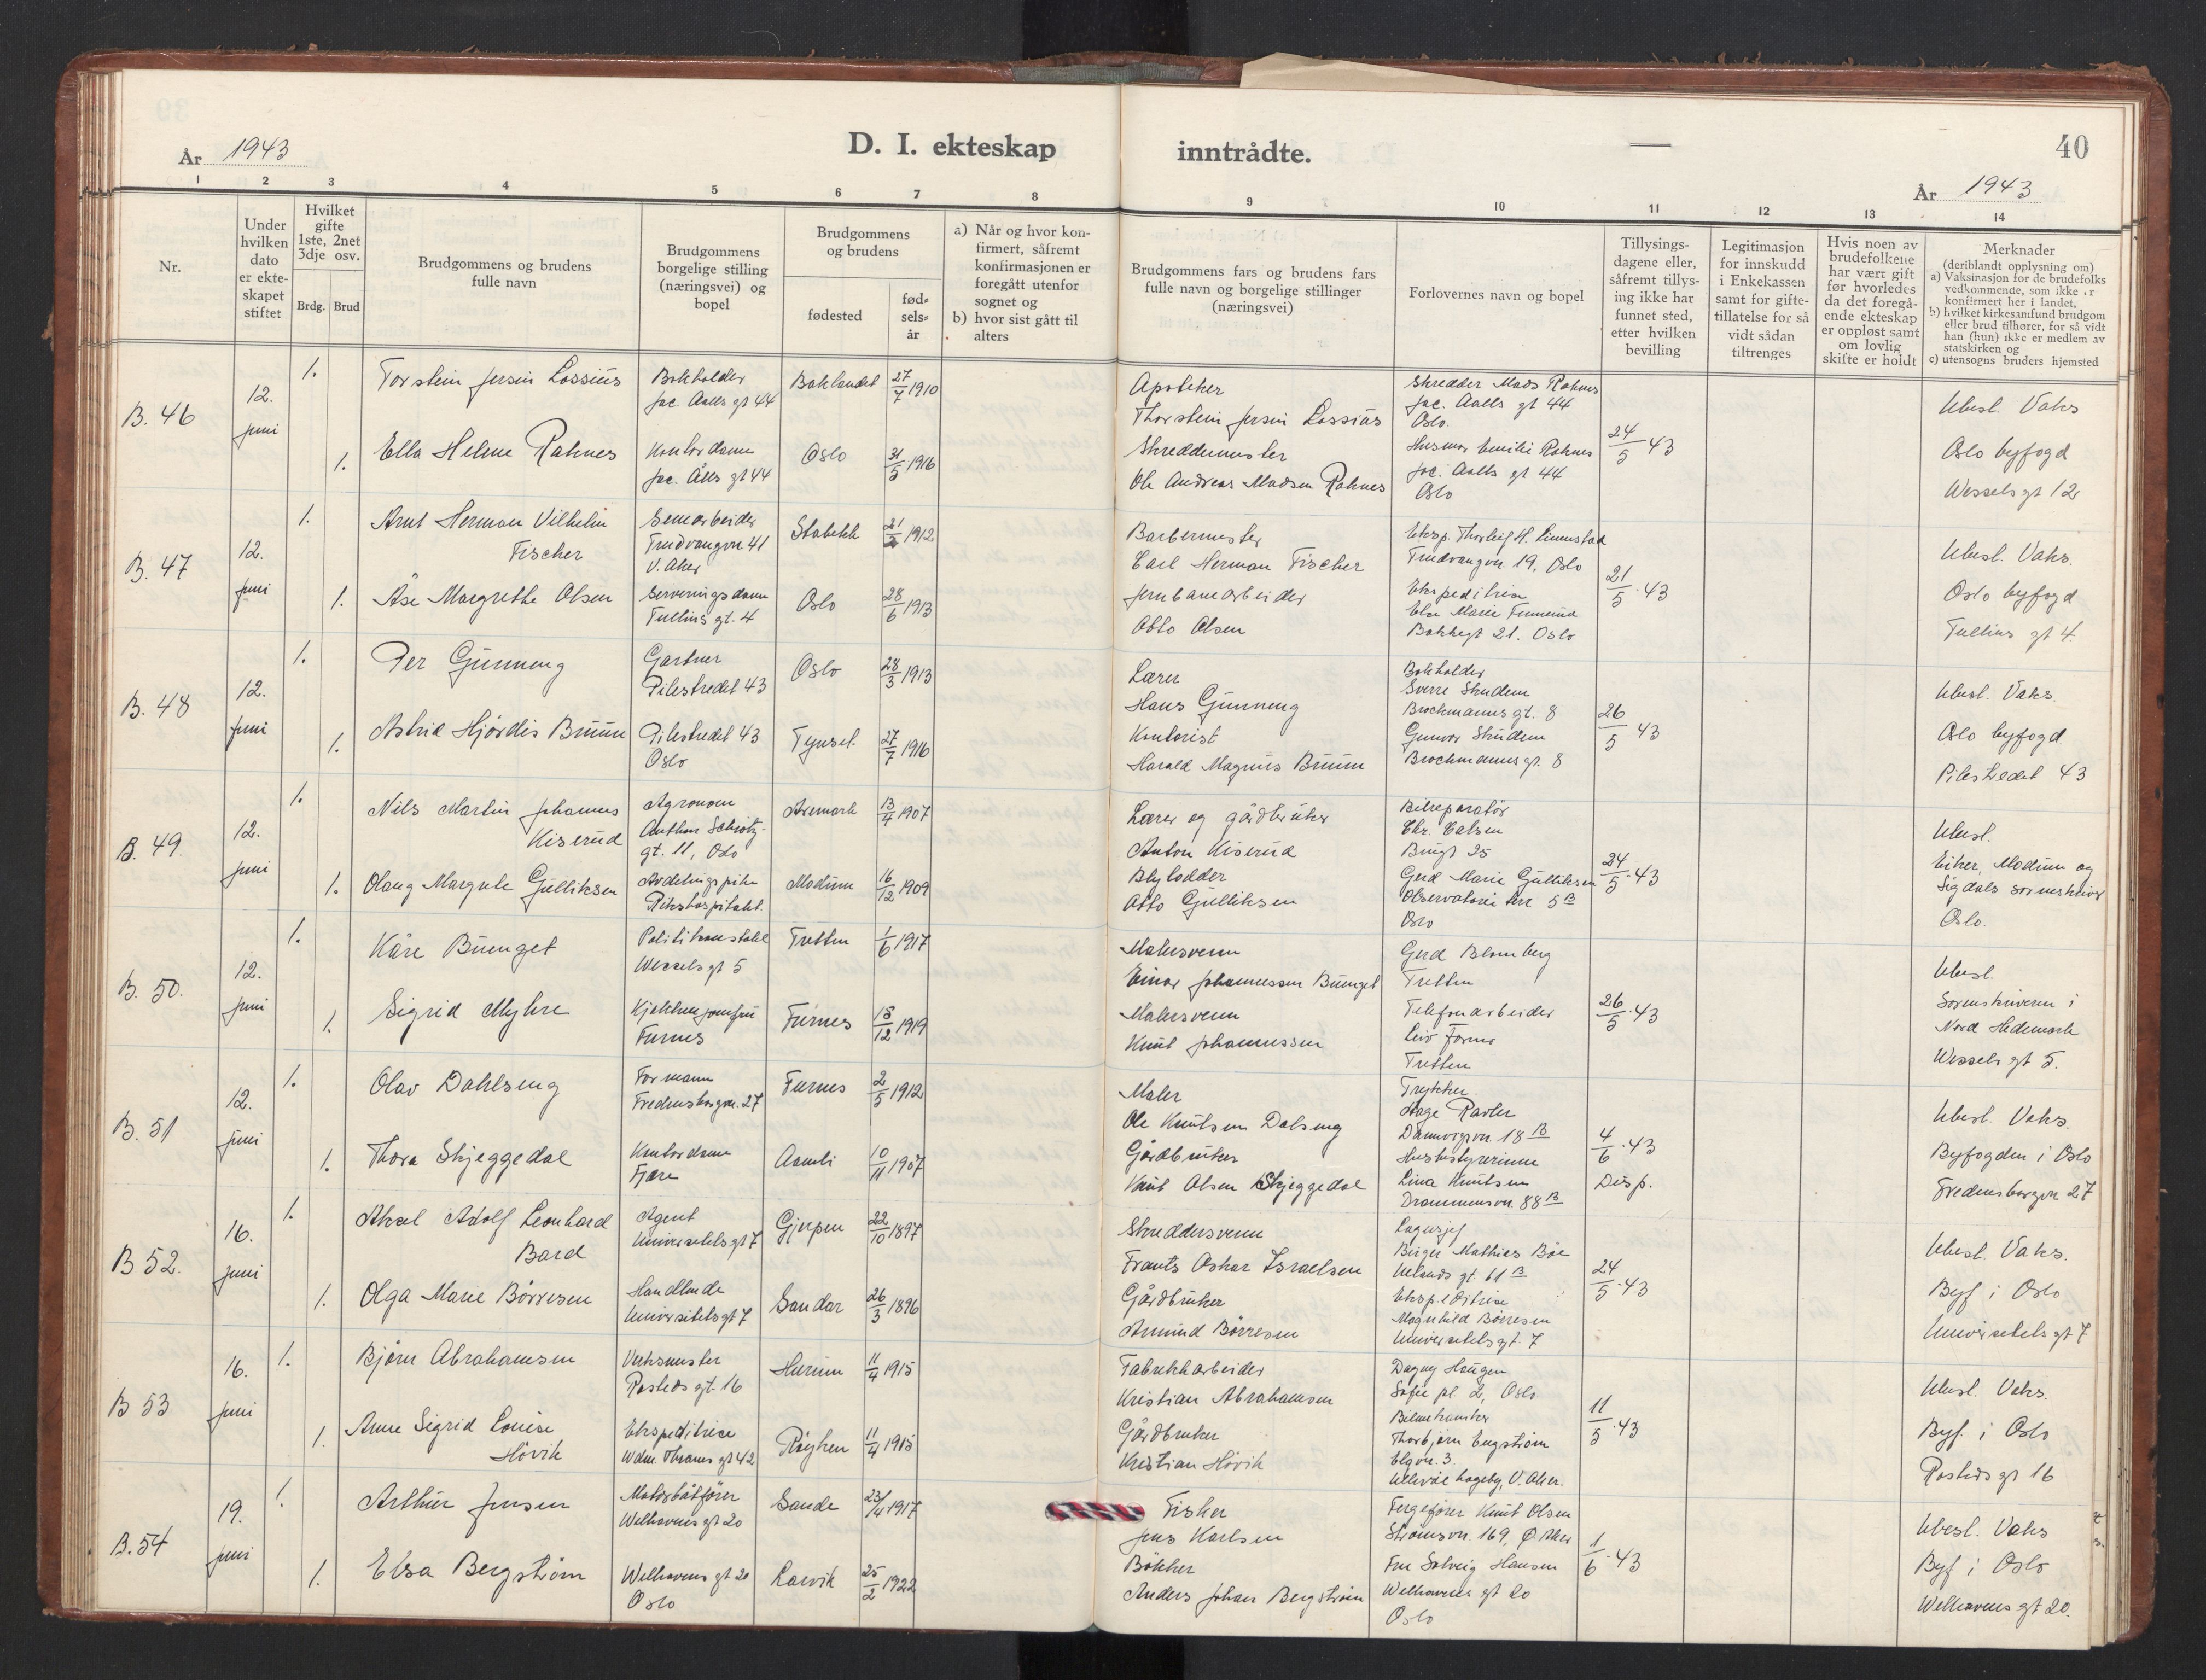 År 1943
D. I. ekteskap inntrådte.
40
År 1943
1 2 3 4 5 6 7 8 9 10 11 12 13 14
Nr.
Under hvilken dato er ekte-skapet stiftet
Hvilket gifte 1ste, 2net 3dje osv.
Brdg. Brud
Brudgommens og brudens fulle navn
Brudgommens borgelige stilling (næringsvei) og bopel
Brudgommens og brudens
fødested
fød-sels-år
a) Når og hvor kon-firmert, såfremt konfirmasjonen er foregått utenfor sognet og
b) hvor sist gått til alters
Brudgommens fars og brudens fars fulle navn og borgelige stillinger (næringsvei)
Forlovernes navn og bopel
Tillysings-dagene eller, såfremt tillys-ing ikke har funnet sted, etter hvilken bevilling
Legitimasjon for innskudd i Enkekassen samt for gifte-tillatelse for så vidt sådan tiltrenges
Hvis noen av brudefolkene har vært gift før hvorledes da det foregå-ende ekteskap er oppløst samt om lovlig skifte er holdt
Merknader
(deriblandt opplysning om)
a) Vaksinasjon for de brudefolks vedkommende, som ikke er konfirmert her i landet,
b) hvilket kirkesamfund brudgom eller brud tilhører, for så vidt han (hun) ikke er medlem av statskirken og
c) utensogns bruders hjemsted
B. 46
12. juni
1. Torstein Jersin Lossius
Bokholder
Jac. Aalls gt 44
27/7 1910
1. Ella Helene Raknes
Kontordame
Jac. Ålls gt 44
Oslo
31/5 1916
Apoteker
Thorstein Jersin Lossius
Skreddermester
Ole Andreas Madsen Raknes
Skredder Mads Raknes
Jac. Aalls gt 44
Oslo.
Husmor Emilie Raknes
Jac. Aalls gt 44
Oslo
24/5 43
Ubesl. Vaks
Oslo byfogd
Wessels gt 12
B. 47
12. juni
1. Arnt Herman Vilhelm
Fischer
Trudvangvn 41
V. Aker
Stabekk
21/2 1912
1. Åse Margrethe Olsen
Serveringsdame
Tullins gt. 4
Oslo
28/6 1913
Barbermester
Carl Herman Fischer
Jernbanearbeider
Otto Olsen
Eksp. Thorleif H. Linnestad
Trudvangvn 19, Oslo
Ekspeditrise
Else Marie
21. Oslo
21/5 43
Ubesl. Vaks.
Oslo byfogd
Tullins gt 4
B. 48
12. juni
1. Per Gunneng
Gartner
Pilestredet 43
Oslo
28/3 1913
1. Astrid Hjørdis Bruun
Pilestredet 43
Oslo
Tynset
27/7 1916
Lærer
Hans Gunneng
Kontorist
Harald Magnus Bruun
Bokholder
Sverre Skudem
Brochmanns gt. 8
Gunvor Skudem
Brochmanns gt. 8
26/5 43
Ubesl. Vaks.
Oslo byfogd
Pilestredet 43
B. 49.
12. juni
1. Nils Martin Johannes
Kiserud
Agronom
Anthon Schiøtz-
gt. 11, Oslo
Aremark
13/4 1907
1. Olaug Margrete Gulliksen
Avdelingspike
Rikshospitalet.
Modum
16/12 1909
Lærer og gårdbruker
Anton Kiserud
Blylodder
Otto Gulliksen
Bilreparatør
Chr. Carlsen
25
Gerd Marie Gulliksen
Observatorie terr 5 B
Oslo
24/5 43
Ubesl.
Eiker, Modum og
Sigdals sorenskriver
Oslo.
B. 50.
12. juni
1. Kåre Buenget
Politikonstabel
Wessels gt 5
Tretten
1/6 1917
1. Sigrid Myhre
Kjøkkenjomfru
Furnes
Furnes
18/12 1919
Malersvenn
Einar Johannessen Buenget
Malersvenn
Knut Johannessen
Gerd Blomberg
Tretten
Telefonarbeider
Leiv Formo
Tretten
26/5 43
Ubesl.
Sorenskriveren i
Nord Hedemark
Wessels gt 5.
B. 51
12. juni
1. Olav Dahlseng
Formann
Fredensborgvn. 27
Furnes
2/5 1912
1. Thora Skjeggedal
Kontordame
Fjære
Aamli
10/11 1907
Maler
Ole Knutsen Dalseng
Gårdbruker
Knut Olsen Skjeggedal
Trykker
Aage Ravler
Damvigvn. 18 B
Husbestyrerinne
Lina Knutsen
Drammensvn. 88 B
4/6 43
Disp.
Ubesl. Vaks.
Byfogden i Oslo
Fredensborgvn 27
B 52.
16. juni
1. Aksel Adolf Leonhard
Bard
Agent
Universitetsgt 7
Gjerpen
22/10 1897
1. Olga Marie Børresen
Handlende
Universitetsgt 7
Sandar
26/3 1896
Skreddersvenn
Frants Oskar Israelsen
Gårdbruker
Amund Børresen
Lagersjef
Birger Mathies Bøe
Uelands gt. 61 B
Ekspeditrise
Magnhild Børresen
Universitetsgt. 7
24/5 43
Ubesl. Vaks.
Byf i Oslo
Universitetsgt 7
B 53
16. juni
1. Bjørn Abrahamsen
Verksmester
Rosteds gt. 16
Hurum
11/4 1915
1. Anne Sigrid Louise
Høvik
Ekspeditrise
Wdm. Thranes gt 42
Røyken
11/4 1915
Fabrikkarbeider
Kristian Abrahamsen
Gårdbruker
Kristian Høvik
Dagny Haugen
Sofie pl. 2, Oslo
Bilmekaniker
Thorbjørn Engstrøm
Elgvn. 3
Ullevål hageby, V. Aker.
11/5 43
Ubesl. Vaks.
Byf. i Oslo
Rosteds gt 16
B. 54
19. juni
1. Arthur Jensen
Motorbåtfører
Welhavens gt 20
Sande
23/4 1917
1. Elsa Bergstrøm
Welhavens gt 20
Oslo
Larvik
25/2 1922
Fisker
Jens Karlsen
Bøkker
Anders Johan Bergstrøm
Fergefører Knut Olsen
Strømsvn. 169, Ø. Aker
Fru Solveig Hansen
Welhavens gt 20
Oslo
1/6 43
Ubesl. Vaks
Byf i Oslo
Welhavens gt 20.